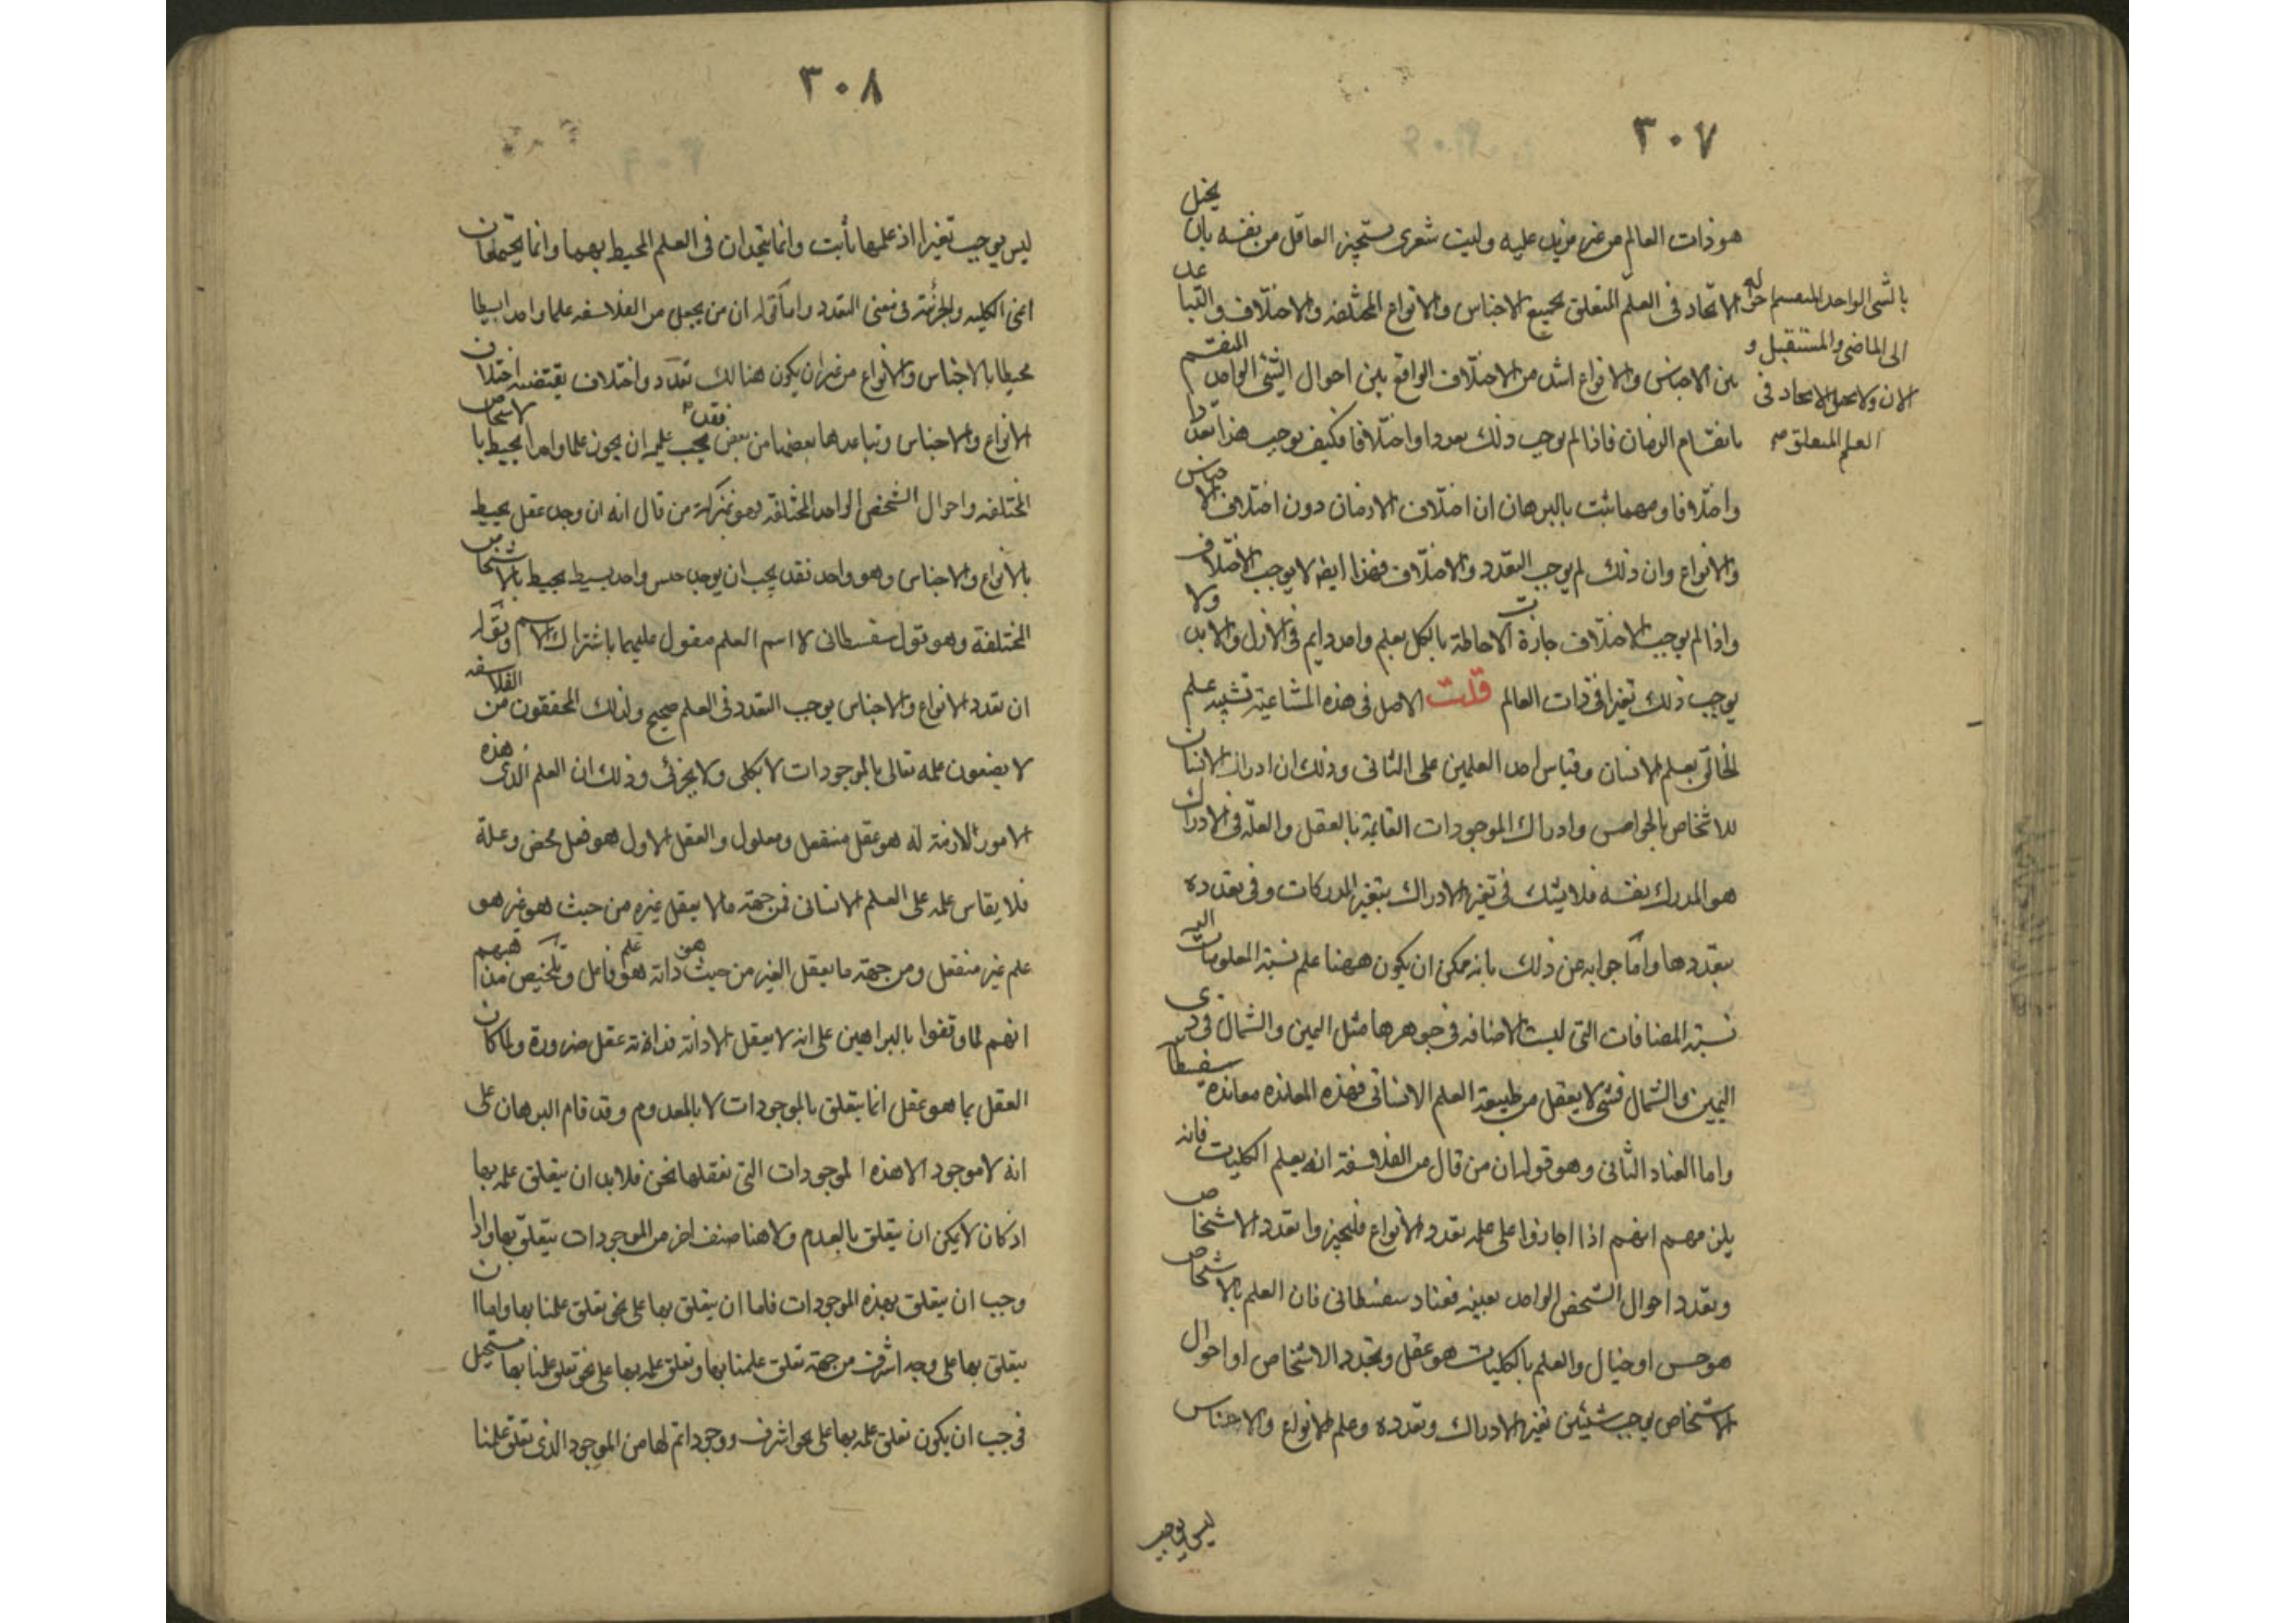 ٣٠٧
هو ذات العالم من غير مزيد عليه وليت شعرى مستجيز العاقل من نفسه بان يخيل
الاتحاد فى العلم المتعلق بجميع الاجناس والانواع المختلفه والاختلاف والتباعد
بين الاجناس والانواع اشد من الاختلاف الواقع بين احوال الشئ الواحد المنقسم
بانقسام الزمان فاذا لم يوجب ذلك تعددا واختلافا فكيف يوجب هذا تعددا
واختلافا ومهما ثبت بالبرهان ان اختلاف الازمان دون اختلاف الاجناس
والانواع وان ذلك لم يوجب التعدد والاختلاف فهذا ايضا لا يوجب الاختلاف
واذا لم يوجب الاختلاف جازت الاحاطة بالكل بعلم واحد دايم فى الازل والابد ولا
يوجب ذلك تغيرا فى ذات العالم قلت الاصل فى هذه المشاغبة تشبيه علم
الخالق بعلم الانسان وقياس احد العلمين على الثانى وذلك ان ادراك الانسان
للاشخاص بالحواس وادراك الموجودات القايمة بالعقل والعلة فى الادراك
هو المدرك نفسه فلا يشك فى تغير الادراك بتغير المدركات وفى تعدده
بتعددها واما جوابه عن ذلك بانه ممكن ان يكون ههنا علم نسبة المعلومات اليه
نسبة المضافات التى ليست الاضافه فى جوهرها مثل اليمين والشمال فى ذى
اليمين والشمال فشئ لا يعقل من طبيعة العلم الانسانى فهذه المعانده معاندة سفسطا
واما العناد الثانى وهو قوله ان من قال من الفلاسفة انه يعلم الكليات فانه
يلزمهم انهم اذا اجازوا على علمه تعدد الانواع فليجيزوا تعدد الاشخاص
وتعدد احوال الشخص الواحد بعينه فعناد سفسطانى فان العلم بالاشخاص
هو حس او خيال والعلم بالكليات هو عقل وتجدد الاشخاص او احوال
الاشخاص يوجب شيئين تغير الادراك وتعدده وعلم الانواع والاجناس
ليس يوجب
بالشى الواحد المنقسم
الى الماضى والمستقبل و
الان ولا يحيل الاتحاد فى
العلم المتعلق
٣٠٨
ليس يوجب تغيرا اذ علمها ثابت وانما يتحدان فى العلم المحيط بهما وانما يجتمعان
اعنى الكليه والجزئية فى معنى التعدد واما قوله ان من يجعل من الفلاسفه علما واحدا بسيطا
محيطا بالاجناس والانواع من غير ان يكون هنالك تعدد واختلاف يقتضيه اختلاف
الانواع والاجناس وتباعدها بعضها من بعض فقد يجب عليه ان يجوز علما واحدا يحيط بالاشخاص
المختلفه واحوال الشخص الواحد المختلفة فهو بمنزلة من قال انه ان وجد عقل يحيط
بالانواع والاجناس وهو واحد فقد يجب ان يوجد جنس واحد بسيط يحيط بالاشخاص
المختلفة وهو قول سفسطانى لا اسم العلم مقول عليهما باشتراك الاسم وقوله
ان تعدد الانواع والاجناس يوجب التعدد فى العلم صحيح ولذلك المحققون من الفلاسفه
لا يصفون علمه تعالى بالموجودات لا بكلى ولا بجزئى وذلك ان العلم الذى هذه
الامور لازمة له هو عقل منفعل ومعلول والعقل الاول هو فعل محض وعلة
فلا يقاس علمه على العلم الانسانى فمن جهة ما لا يعقل غيره من حيث هو غير هو
علم غير منفعل ومن جهة ما يعقل الغير من حيث هو ذاته هو علم فاعل وتلخيص مذهبهم
انهم لما وقفوا بالبراهين على انه لا يعقل الا ذاته فذاته عقل ضرورة ولما كان
العقل بما هو عقل انما يتعلق بالموجودات لا بالمعدوم وقد قام البرهان على
انه لا موجود الا هذه الموجودات التى نعقلها نحن فلا بد ان يتعلق علمه بها
اذ كان لا يمكن ان يتعلق بالعدم ولا هنا صنف اخر من الموجودات يتعلق بها واذا
وجب ان يتعلق بهذه الموجودات فاما ان يتعلق بها على نحو تعلق علمنا بها واما ان
يتعلق بها على وجه اشرف من جهة تعلق علمنا بها وتعلق علمه بها على نحو تعلق علمنا بها مستحيل
فوجب ان يكون تعلق علمه بها على نحو اشرف ووجود اتم لها من الموجود الذى تعلق علمنا